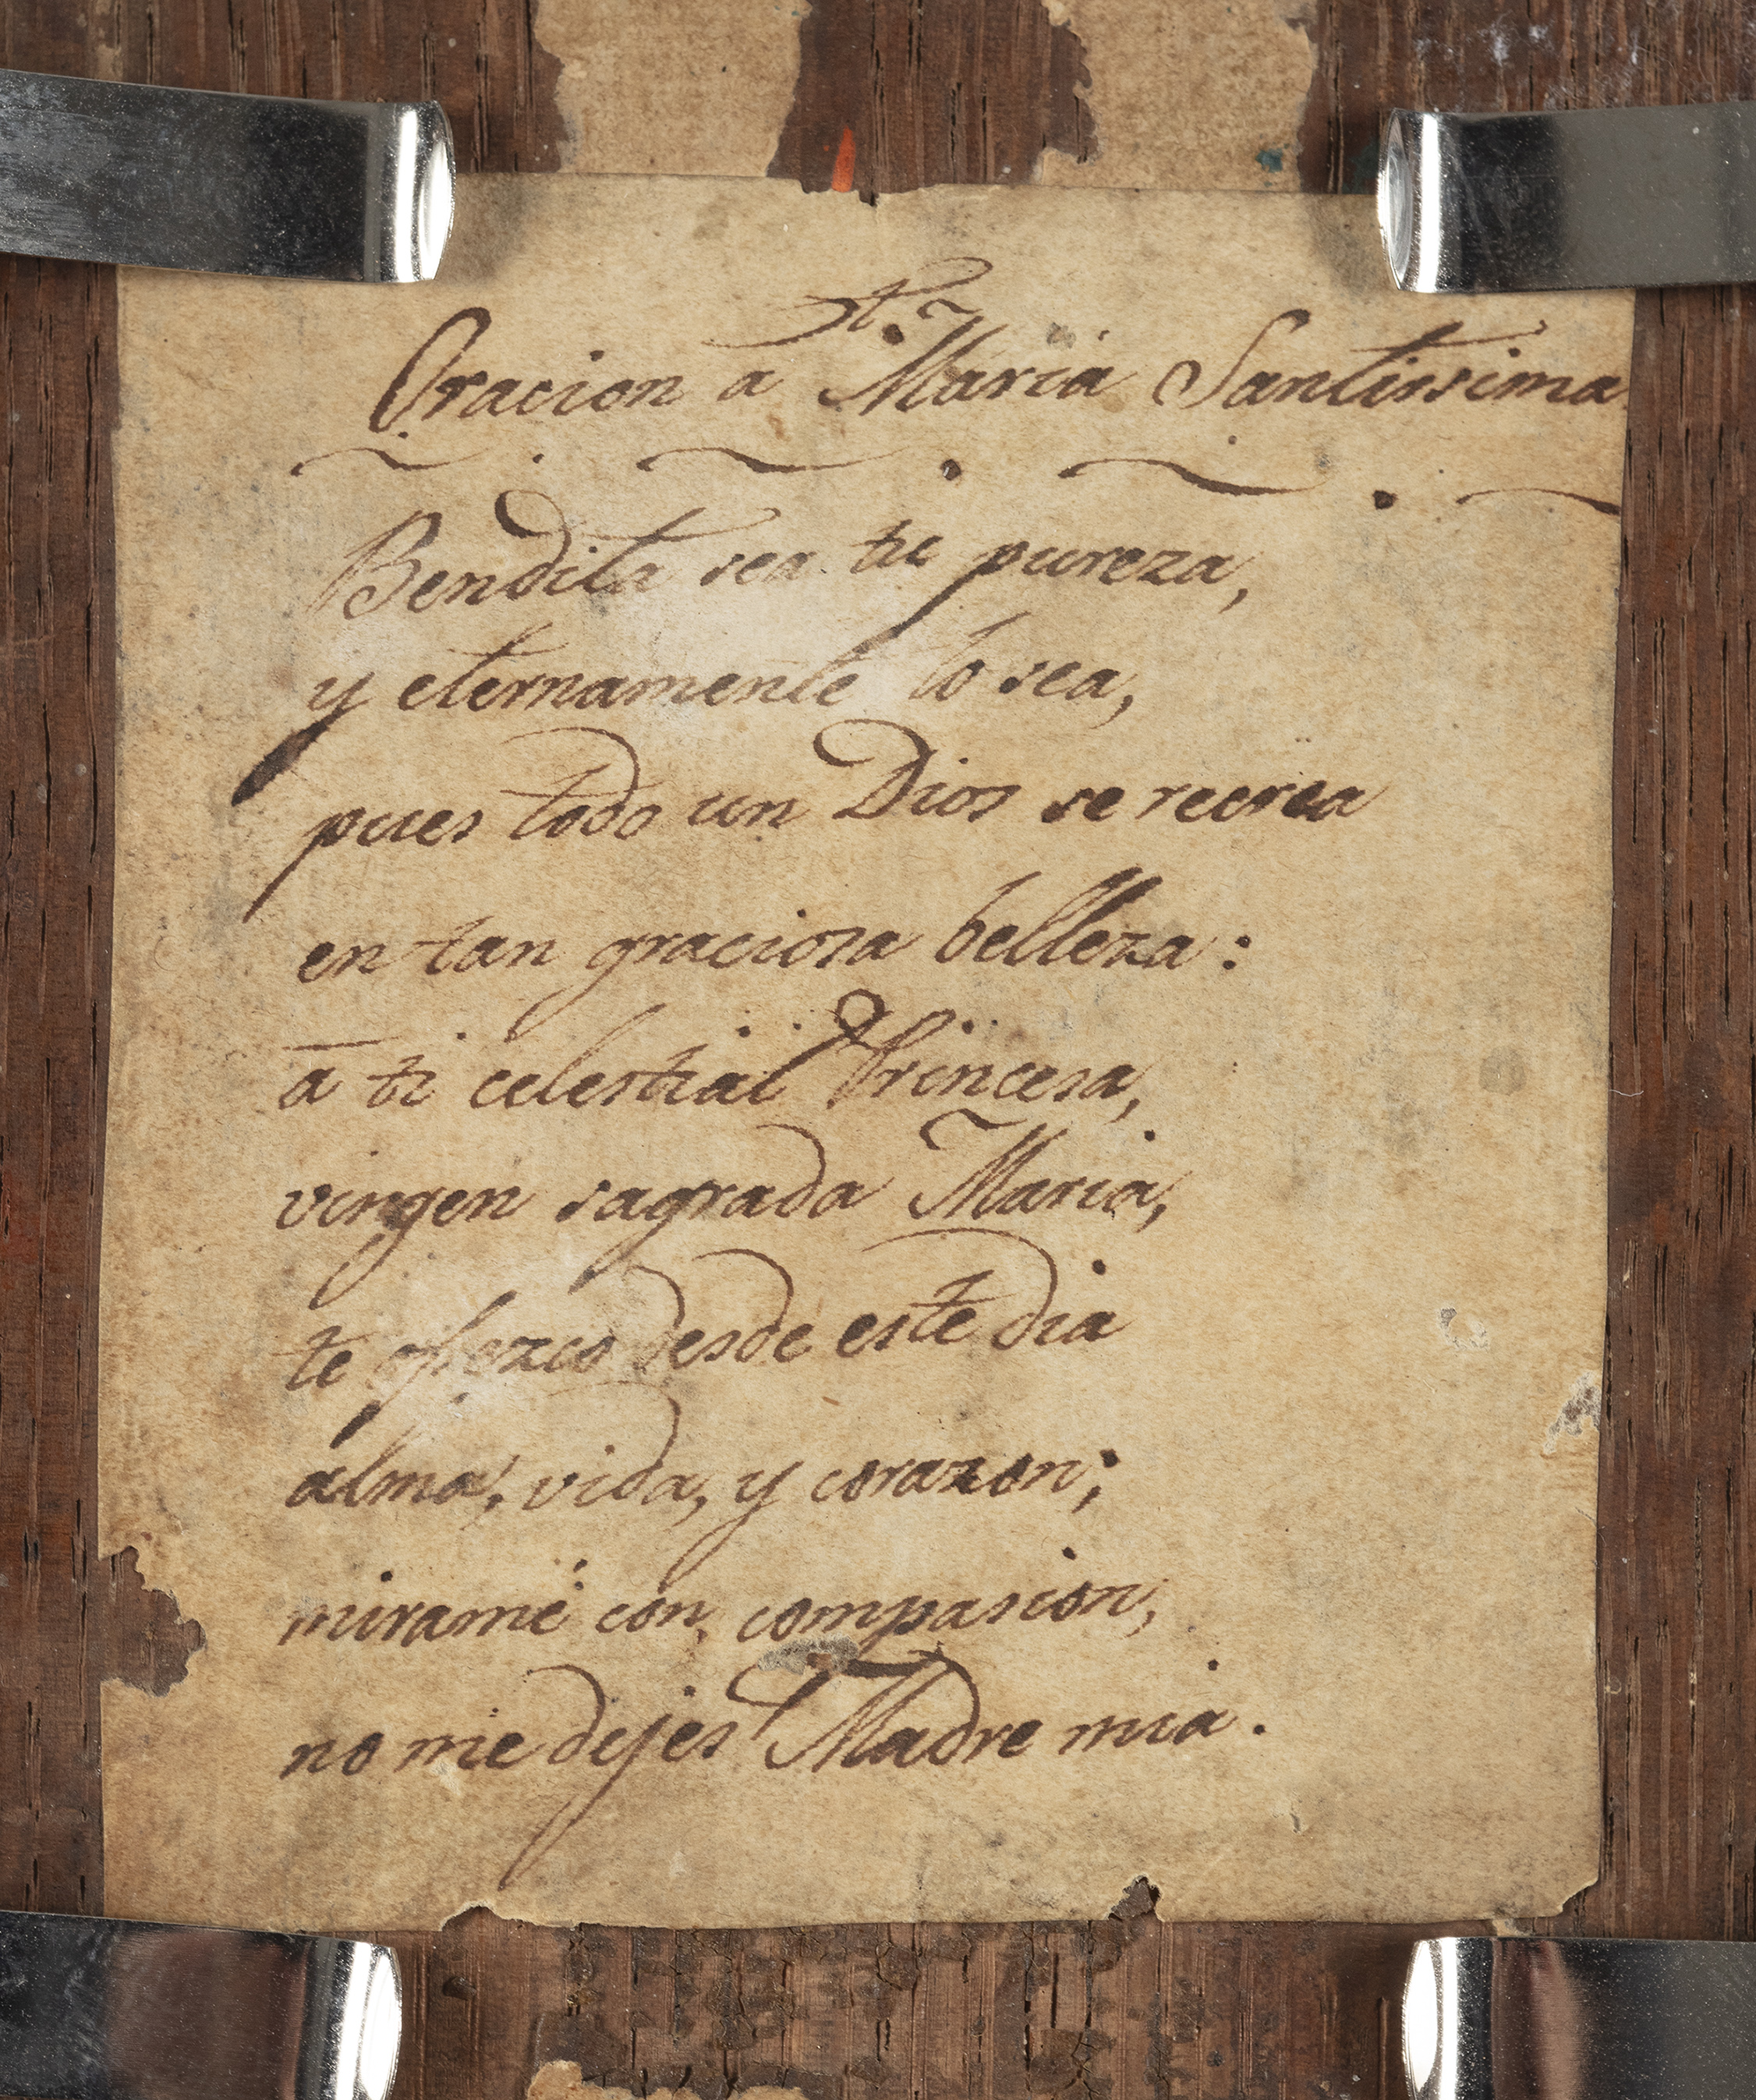 Oracion a Maria Santissima
Bendita sea tu pureza,
y eternamente lo sea,
pues todo un Dios se recrea
en tan graciosa belleza:
ā ti celestial Princesa,
virgen sagrada Maria,
te ofrezco desde este dia
alma, vida, y corazon;
miramé con compasion,
no me dejes Madre mia.